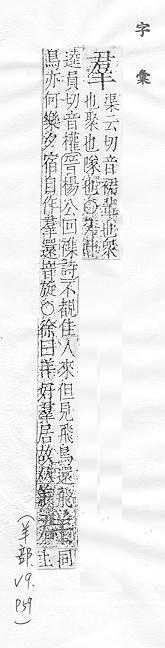 字彙
羣
渠云切音裙輩也衆
也聚也隊也〇
逵員切音權晉楊公回碟詩不覩佳人來但見飛鳥還飛
鳥亦何樂夕宿自作羣還音旋〇徐曰羊好羣居故
(羊部. V9. P59)